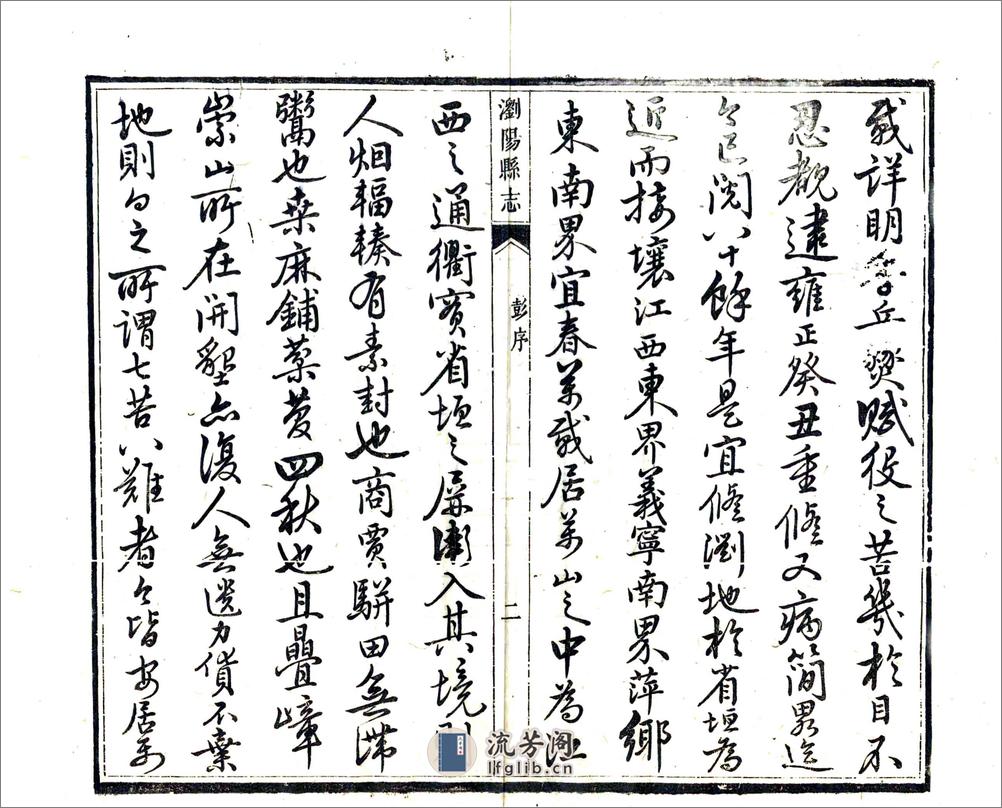 載詳明季兵燹賦役之苦幾於目不
忍覩逮雍正癸丑重修又病簡畧迄
今已閱八十餘年是宜修瀏地於省垣為
近而接壤江西東界義寧南界萍鄉
東南界宜春萬載居萬山之中為江
瀏陽縣志
彭序
二
西之通衢實省垣之屏衛入其境則
人烟輻輳有素封也商賈駢田無滯
鬻也桑麻鋪四秋也且疊嶂
崇山所在開墾亦復人無遺力貨不棄
地則向之所謂七苦八難者今皆安居樂
流芳阁
lfglib.cn